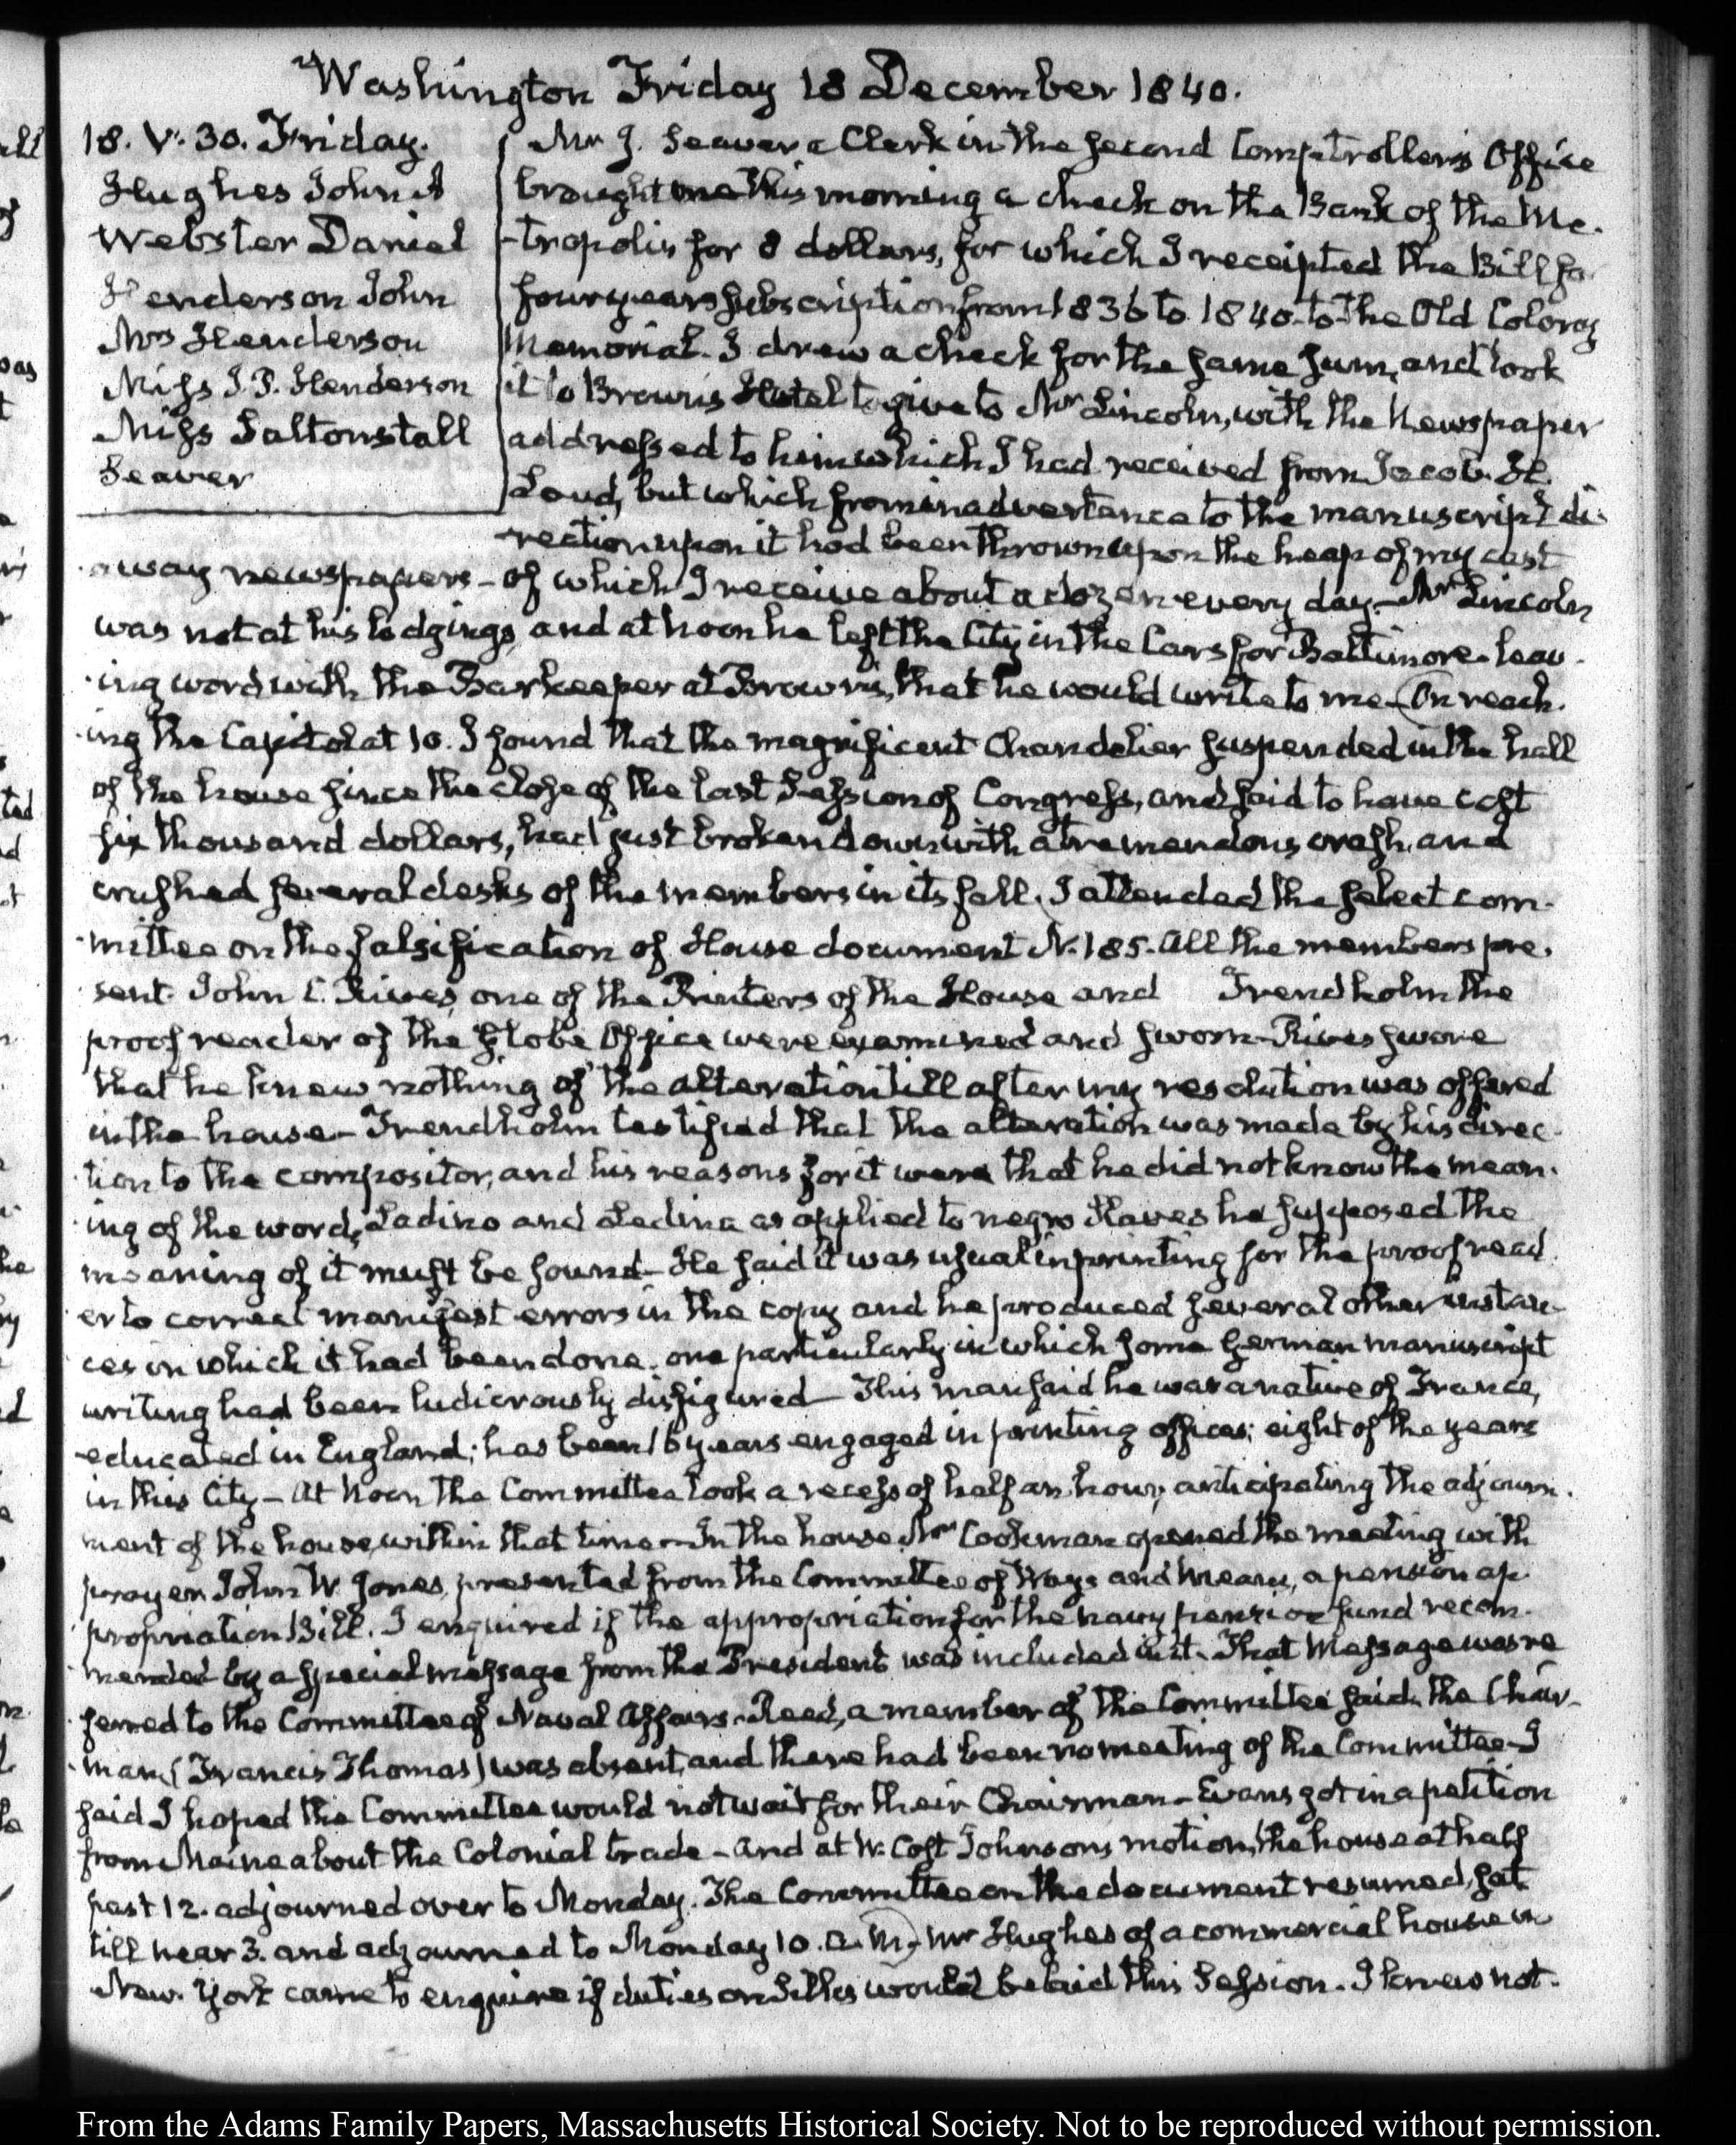 Washington Friday 18 December 1840.
18. V. 30. Friday.
Hughes John A
Webster Daniel
Henderson John
Mrs Henderson
Miss J. P. Henderson
Miss Saltonstall
Seaver
Mr J. Seaver a Clerk in the second Comptroller's Office
brought me this morning a check on the Bank of the Me-
-tropolis for 8 dollars, for which I receipted the Bill for
four years subscription from 1836 to 1840 to the Old Colony
Memorial. I drew a check for the same sum, and took
it to Brown's Hotel to give to Mr Lincoln, with the Newspaper
addressed to him which I had received from Jacob. H.
Loud, but which from inadvertence to the manuscript di-
-rection upon it had been thrown upon the heap of my cast
away newspapers - of which I receive about a dozen every day - Mr Lincoln
was not at his lodgings, and at noon he left the City in the Cars for Baltimore - leav-
-ing word with the Barkeeper at Brown's, that he would write to me - On reach-
-ing the Capitol at 10. I found that the magnificent Chandelier suspended in the hall
of the house since the close of the last Session of Congress, and said to have cost
six thousand dollars, had just broken down with a tremendous crash, and
crushed several desks of the members in its fall. I attended the select com-
-mittee on the falsification of House document N. 185. All the members pre-
-sent. John C. Rives, one of the Printers of the House and Trendholm the
proof reader of the Globe Office were examined and sworn - Rives swore
that he knew nothing of the alteration till after my resolution was offered
in the house - Trendholm testified that the alteration was made by his direc-
-tion to the compositor, and his reasons for it were that he did not know the mean-
-ing of the words, Ladino and Ladina as applied to negro slaves he supposed the
meaning of it must be sound - He said it was usual in printing for the proof read-
er to correct manifest errors in the copy and he produced several other instan-
ces in which it had been done. one particularly in which some German manuscript
writing had been ludicrously disfigured - This man said he was a native of France,
educated in England; has been 16 years engaged in printing offices; eight of the years
in this City - At Noon the Committee took a recess of half an hour, anticipating the adjourn-
ment of the house, within that time - In the house Mr Cookman opened the meeting with
prayer. John W. Jones, presented from the Committee of Ways and Means, a pension ap-
propriation Bill. I enquired if the appropriation for the navy pension fund recom-
mended by a special message from the President was included in it. That Message was re
ferred to the Committee of Naval Affairs. Reed, a member of the Committee said, the Chair-
man (Francis Thomas) was absent, and there had been no meeting of the Committee - I
said I hoped the Committee would not wait for their Chairman - Evans got in a petition
from Maine about the Colonial trade - and at W. Cost Johnson's motion, the house at half
past 12. adjourned over to Monday. The Committee on the document resumed, sat
till near 3. and adjourned to Monday 10. A. M. - Mr Hughes of a commercial house in
New. York came to enquire if duties on Silks would be laid this Session. I knew not.
From the Adams Family Papers, Massachusetts Historical Society. Not to be reproduced without permission.